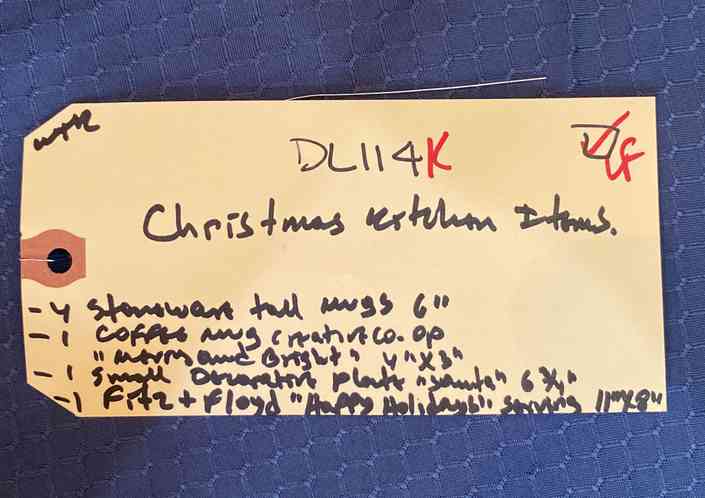 DL114K
Christmas Kitchen Items.
- 4 Stoneware tall mugs 6"
- 1 Coffee mug Creative Co. Op
"Merry and Bright" 4" x 3"
- 1 Small Decorative Plate "Santa" 6 3/4"
- 1 Fitz + Floyd "Happy Holidays" Serving 11" x 8"